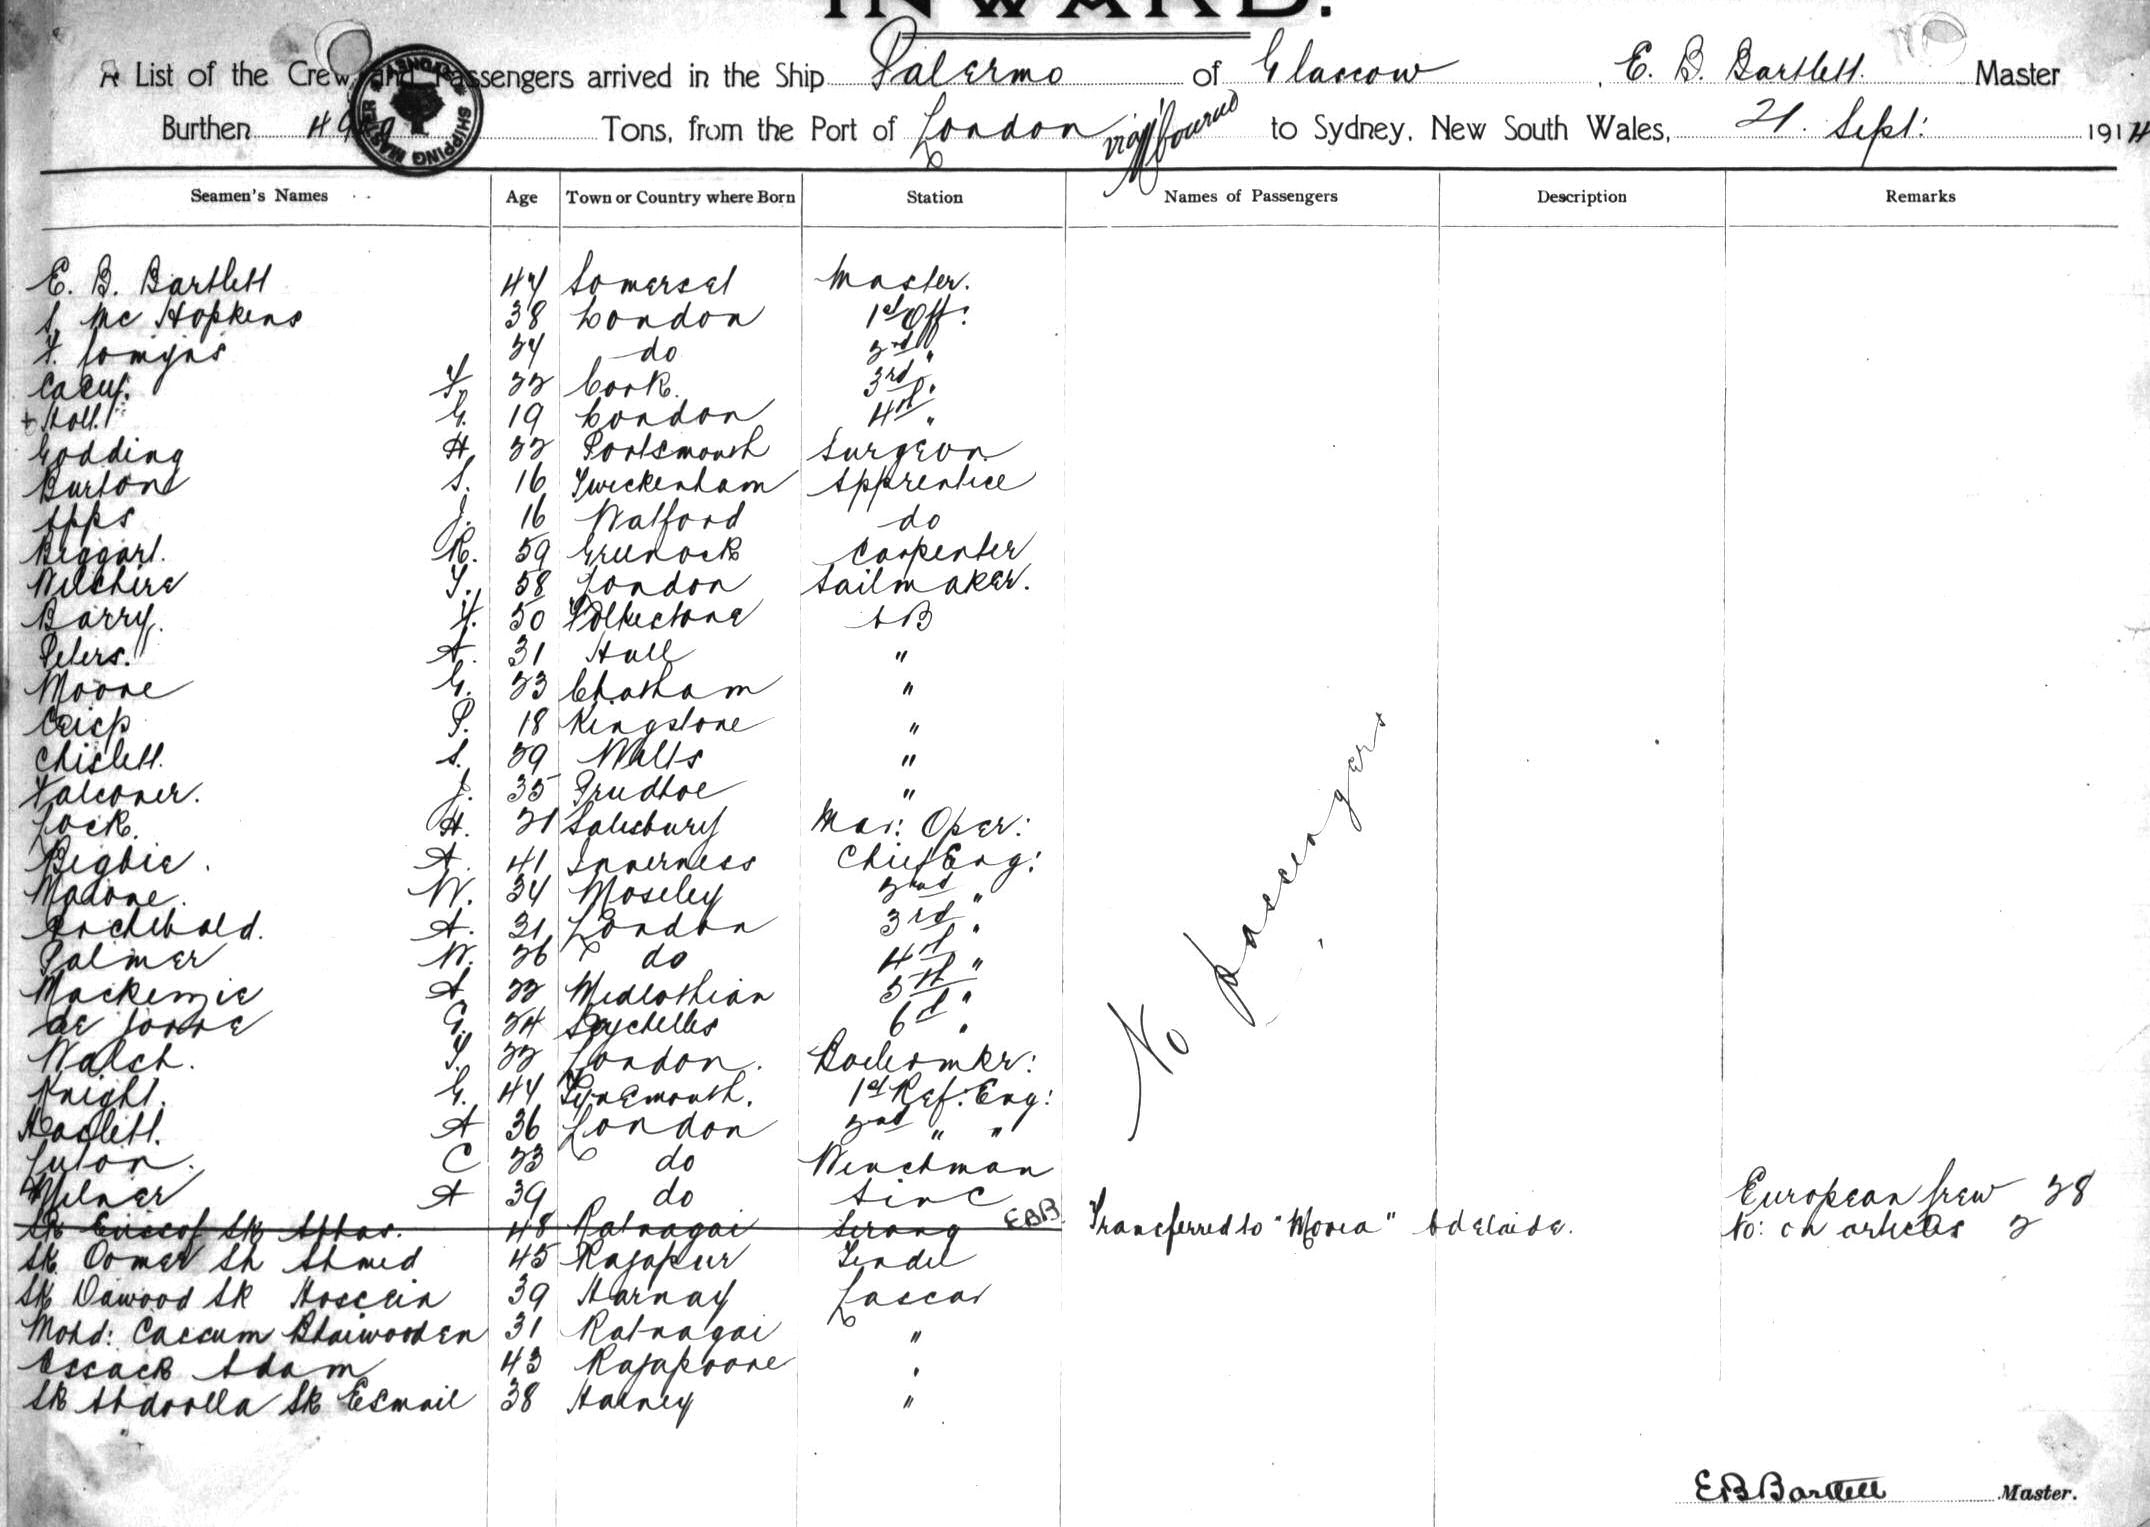 INWARD.
A List of the Crew and Passengers arrived in the Ship Palermo of Glascow, E. B. Bartlett. Master
Burthen Tons, from the Port of London via M'bourne to Sydney, New South Wales, 21. Sept: 1914
SHIPPING MASTER SYDNEY
Seamen's Names Age Town or Country where Born Station Names of Passengers Description Remarks
E. B. Bartlett 47 Somerset Master.
S. Mc Hopkins 38 London 1st Off:
do 2nd "
Casey. 22 Cork. 3rd "
+ Holl. G. 19 London 4th "
Godding H. 22 Portsmouth Surgeon
Burton S. 16 Twickenham Apprentice
Apps J. 16 Watford do
Beggart. R. 59 Greenock Carpenter
Wilshire T. 58 London Sailmaker.
Barry. F. 50 Folkestone AB
Peters. A. 31 Hull "
Moore G. 23 Chatham "
Crisp P. 18 Kingstone "
Chislett. S. 29 Wilts "
Falconer. J. 35 Prudhoe "
Lock. H. 21 Salisbury Mar: Oper:
Begbie. A. 41 Inverness Chief Eng:
Malone. W. 34 Moseley 2nd "
Archibald. A. 31 London 3rd "
Palmer W. 26 do 4th "
Mackenzie A 22 Midlothian 5th "
de G. 24 Seychelles 6th "
Walsh. T. 22 London. Boilermkr:
Knight. G. 44 Tynemouth. 1st Ref: Eng:
Haslett. A 36 London 2nd " "
Luton. C 23 do Winchman
Milner A 39 do
Sk Eussof Sk Abbas. 48 Ratnagai Serang EBB Transferred to "Morea" Adelaide.
Sk. Oomer Sk Ahmed 45 Rajapur Tindel
Sk Dawood Sk Hossein 39 Harnay Lascar
Mohd: Cassum Bhaiwooden 31 Ratnagai "
Essack Adam 43 Rajapoore "
Sk Abdoolla Sk Esmail 38 Harney "
No passengers
European Crew 28
No: on articles 2
EBBartlett Master.